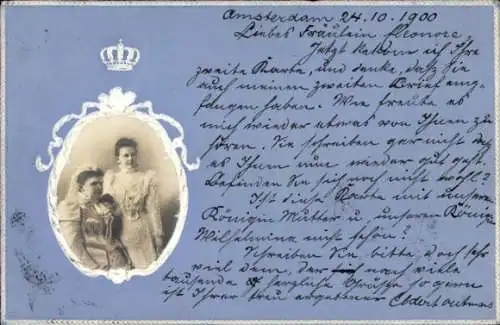 Amsterdam 24.10.1900
Liebes Fräulein Eleonore,
Jetzt bekam ich Ihre
zweite Karte, und denke, dasz Sie
auch meinen zweiten Brief emp-
fangen haben. Wie freute es
mich wieder etwas von Ihnen zu
hören. Sie schreiben gar nicht dasz
es Ihnen nun wieder gut geht.
Befinden Sie sich noch nicht wohl?
Ist diese Karte mit unserer
Königin Mutter u. unserer Königin
Wilhelmina nicht schön?
Schreiben Sie, bitte, doch sehr
viel dem, der noch viele
tausende herzliche Grüsze so gern
ist Ihrer treu ergebener